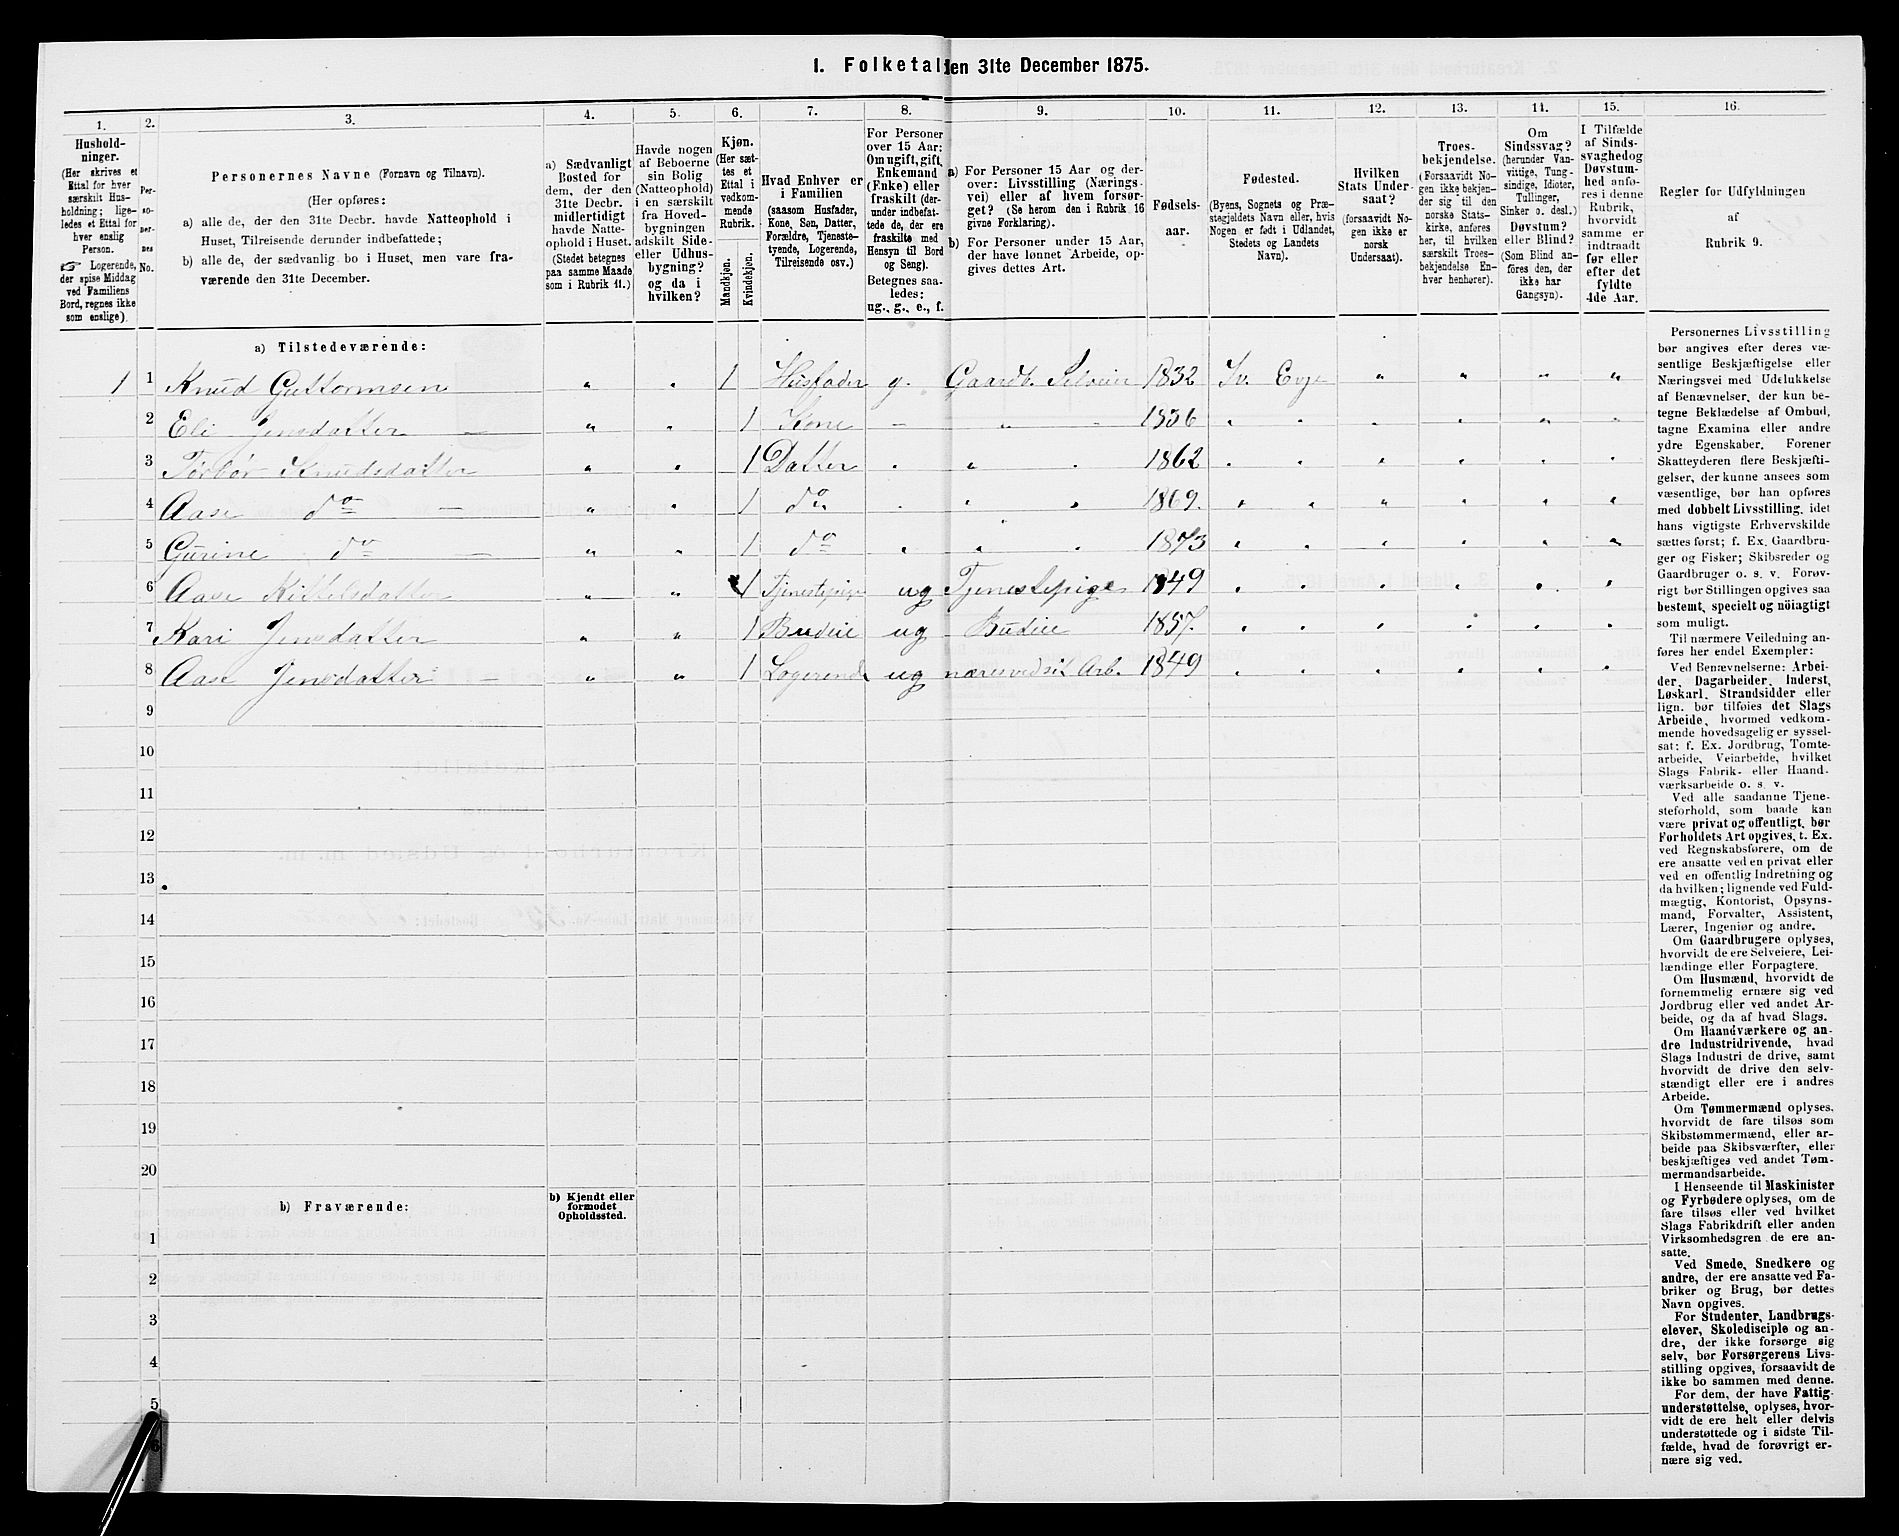 1. Folketal den 31te December 1875.
1. 2. 3. 4. 5. 6. 7. 8. 9. 10. 11. 12. 13. 14. 15. 16.
Hushold-
ninger.
(Her skrives et
Ettal for hver
særskilt Hus-
holdning; lige-
ledes et Ettal for
hver enslig
Person.
☞ Logerende,
der spise Middag
ved Familiens
Bord, regnes ikke
som enslige).
Per-
so-
ner-
nes
No.
Personernes Navne (Fornavn og Tilnavn).
(Her opføres:
a) alle de, der den 31te Decbr. havde Natteophold i
Huset, Tilreisende derunder indbefattede;
b) alle de, der sædvanlig bo i Huset, men vare fra-
værende den 31te December.
a) Sædvanligt
Bosted for
dem, der den
31te Decbr.
midlertidigt
havde Natte-
ophold i Huset.
(Stedet betegnes
paa samme Maade
som i Rubrik 11.)
Havde nogen
af Beboerne
sin Bolig
(Natteophold)
i en særskilt
fra Hoved-
bygningen
adskilt Side-
eller Udhus-
bygning?
og da i
hvilken?
Kjøn.
(Her sæt-
tes et
Ettal i
vedkom-
mende
Rubrik.
Mandkjøn.
Kvindekjøn.
Hvad Enhver er
i Familien
(saasom Husfader,
Kone, Søn, Datter,
Forældre, Tjeneste-
tyende, Logerende,
Tilreisende osv.)
For Personer
over 15 Aar:
Om ugift, gift,
Enkemand
(Enke) eller
fraskilt (der-
under indbefat-
tede de, der ere
fraskilte med
Hensyn til Bord
og Seng).
Betegnes saa-
ledes:
ug., g., e., f.
a) For Personer 15 Aar og der-
over: Livsstilling (Nærings-
vei) eller af hvem forsør-
get? (Se herom den i Rubrik 16
givne Forklaring).
b) For Personer under 15 Aar,
der have lønnet Arbeide, op-
gives dettes Art.
Fødsels-
aar.
Fødested.
(Byens, Sognets og Præ-
stegjeldets Navn eller, hvis
Nogen er født i Udlandet,
Stedets og Landets
Navn).
Hvilken
Stats Under-
saat?
(forsaavidt No-
gen ikke er
norsk
Undersaat).
Troes-
bekjendelse.
(Forsaavidt No-
gen ikke bekjen-
der sig til den
norske Stats-
kirke, anføres
her, til hvilken
særskilt Troes-
bekjendelse En-
hver henhører).
Om
Sindssvag?
(herunder Van-
vittige, Tung-
sindige, Idioter,
Tullinger,
Sinker o. desl.)
Døvstum?
eller Blind?
(Som Blind an-
føres den, der
ikke har
Gangsyn).
I Tilfælde
af Sinds-
svaghed og
Døvstum-
hed anfø-
res i denne
Rubrik,
hvorvidt
samme er
indtraadt
før eller
efter det
fyldte
4de Aar.
Regler for Udfyldningen
af
Rubrik 9.
a) Tilstedeværende:
1 1 Knud Guttormsen " " 1 Husfader g. Gaardb. Selveier 1832 Iv. Evje " " " "
2 Eli Jensdatter — " " 1 Kone — " - 1836 " " " " " "
3 Torbør Knudsdatter " " 1 Datter " " " 1862 " " " " " "
4 Aase do — " " 1 do. " " " 1869. " " " " " "
5 Gurine do — " " 1 do " " " 1873 " " " " " "
6 Aase Kittelsdatter " " 1 Tjenestepige ug Tjenestepige 1849 " " " " " "
7 Kari Jensdatter " " 1 Budeie ug Budeie 1857. " " " " " "
8 Aase Jensdatter — " " 1 Logerende ug næres ved sit Arb. 1849 " " " " " "
9
10
11
12
13
14
15
16
17
18
19
20
b) Fraværende:
b) Kjendt eller
formodet
Opholdssted.
1
2
3
4
5
6
Personernes Livsstilling
bør angives efter deres væ-
sentlige Beskjæftigelse eller
Næringsvei med Udelukkelse
af Benævnelser, der kun be-
tegne Beklædelse af Ombud,
tagne Examina eller andre
ydre Egenskaber. Forener
Skatteyderen flere Beskjæfti-
gelser, der kunne ansees som
væsentlige, bør han opføres
med dobbelt Livsstilling, idet
hans vigtigste Erhvervskilde
sættes først; f. Ex. Gaardbru-
ger og Fisker; Skibsreder og
Gaardbruger o. s. v. Forøv-
rigt bør Stillingen opgives saa
bestemt, specielt og nöiagtigt
som muligt.
Til nærmere Veiledning an-
føres her endel Exempler:
Ved Benævnelserne: Arbei-
der, Dagarbeider, Inderst,
Løskarl, Strandsidder eller
lign. bør tilføies det Slags
Arbeide, hvormed vedkom-
mende hovedsagelig er syssel-
sat; f. Ex. Jordbrug, Tomte-
arbeide, Veiarbeide, hvilket
Slags Fabrik- eller Haand-
værksarbeide o. s. v.
Ved alle saadanne Tjene-
steforhold, som baade kan
være privat og offentligt, bør
Forholdets Art opgives, t. Ex.
ved Regnskabsførere, om de
ere ansatte ved en privat eller
ved en offentlig Indretning og
da hvilken; lignende ved Fuld-
mægtig, Kontorist, Opsyns-
mand, Forvalter, Assistent,
Lærer, Ingeniør og andre.
Om Gaardbrugere oplyses,
hvorvidt de ere Selveiere, Lei-
lændinge eller Forpagtere.
Om Husmænd, hvorvidt de
fornemmelig ernære sig ved
Jordbrug eller ved andet Ar-
beide, og da af hvad Slags.
Om Haandværkere og an-
dre Industridrivende, hvad
Slags Industri de drive, samt
hvorvidt de drive den selv-
stændigt eller ere i andres
Arbeide.
Om Tømmermænd oplyses,
hvorvidt de fare tilsøs som
Skibstømmermænd, eller ar-
beide paa Skibsværfter, eller
beskjæftiges ved andet Tøm-
mermandsarbeide.
I Henseende til Maskinister
og Fyrbødere oplyses, om de
fare tilsøs eller ved hvilket
Slags Fabrikdrift eller anden
Virksomhedsgren de ere an-
satte.
Ved Smede, Snedkere og
andre, der ere ansatte ved Fa-
briker og Brug, bør dettes
Navn opgives.
For Studenter, Landbrugs-
elever, Skoledisciple og an-
dre, der ikke forsørge sig
selv, bør Forsørgerens Livs-
stilling opgives, forsaavidt de
ikke bo sammen med denne.
For dem, der have Fattig-
understøttelse, oplyses, hvor-
vidt de ere helt eller delvis
understøttede og i sidste Til-
fælde, hvad de forøvrigt er-
nære sig ved.